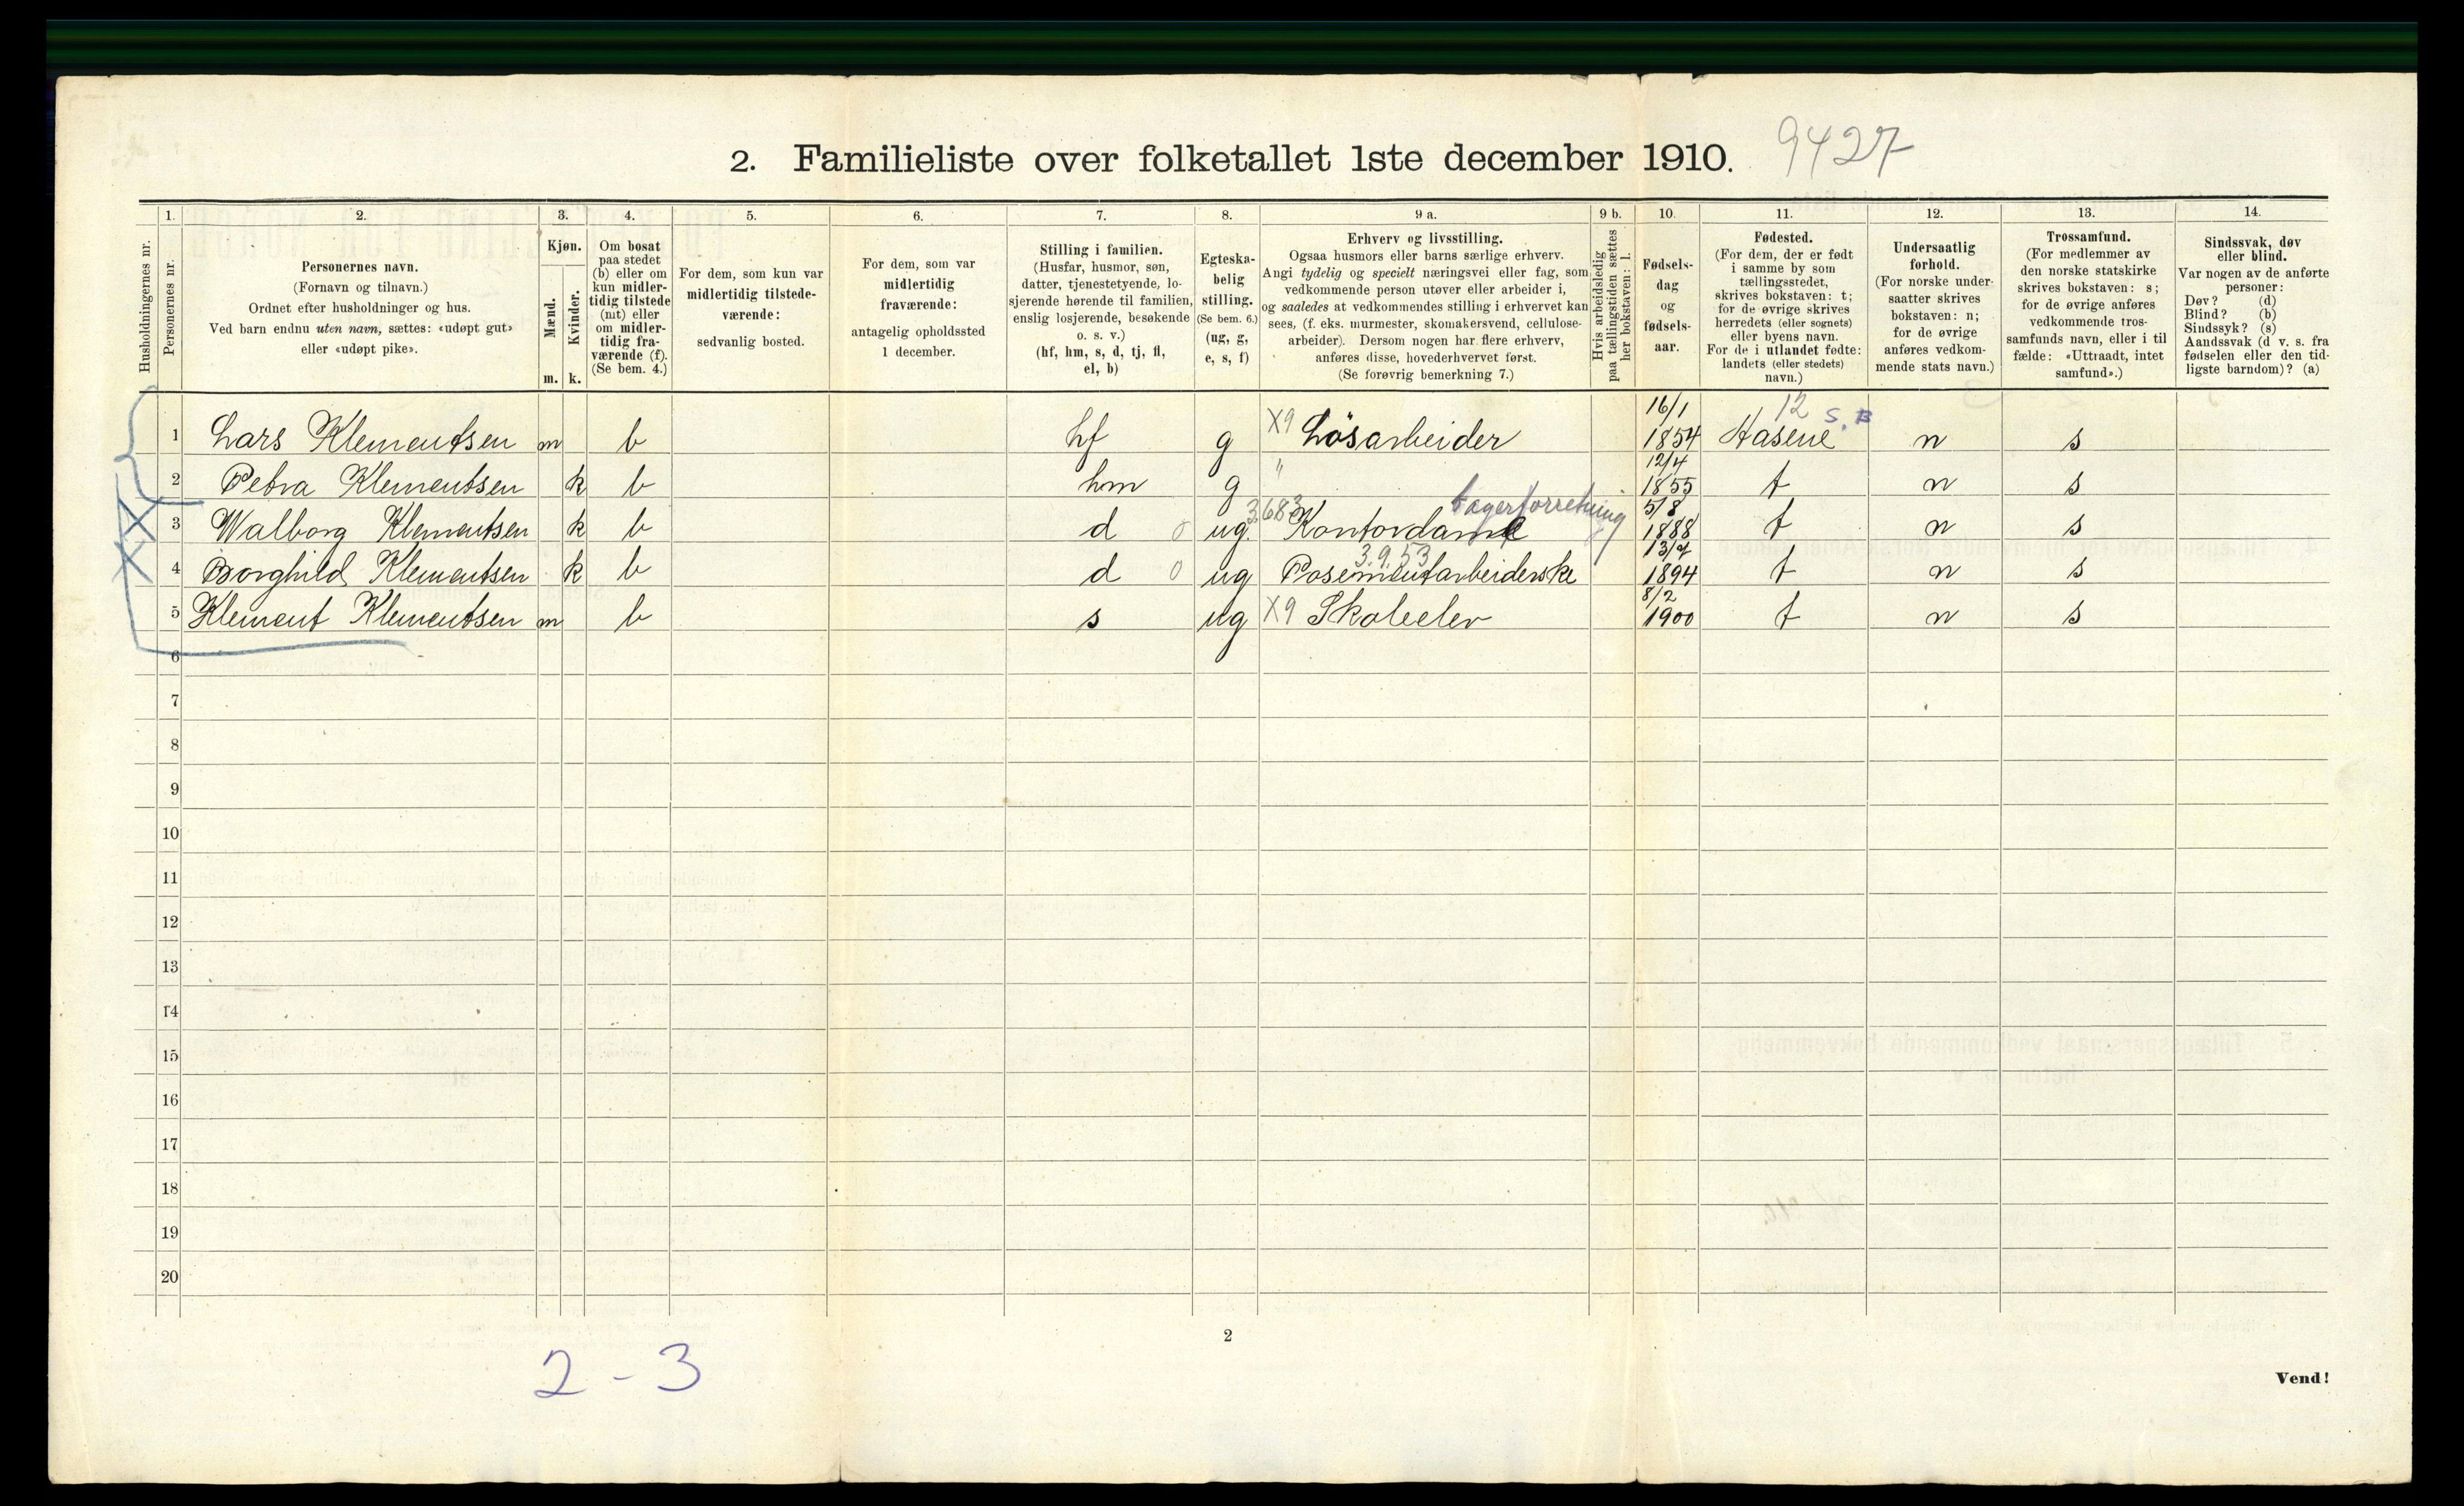 2. Familieliste over folketallet 1ste december 1910. 9427
1. 2. 3. 4. 5. 6. 7. 8. 9 a. 9 b. 10. 11. 12. 13. 14.
Husholdningernes nr.
Personernes nr.
Personernes navn.
(Fornavn og tilnavn.)
Ordnet efter husholdninger og hus.
Ved barn endnu uten navn, sættes: «udøpt gut»
eller «udøpt pike».
Kjøn.
Mænd.
Kvinder.
m. k.
Om bosat
paa stedet
(b) eller om
kun midler-
tidig tilstede
(mt) eller
om midler-
tidig fra-
værende (f).
(Se bem. 4.)
For dem, som kun var
midlertidig tilstede-
værende:
sedvanlig bosted.
For dem, som var
midlertidig
fraværende:
antagelig opholdssted
1 december.
Stilling i familien.
(Husfar, husmor, søn,
datter, tjenestetyende, lo-
sjerende hørende til familien,
enslig losjerende, besøkende
o. s. v.)
(hf, hm, s, d, tj, fl,
el, b)
Egteska-
belig
stilling.
(Se bem. 6.)
(ug, g,
e, s, f)
Erhverv og livsstilling.
Ogsaa husmors eller barns særlige erhverv.
Angi tydelig og specielt næringsvei eller fag, som
vedkommende person utøver eller arbeider i,
og saaledes at vedkommendes stilling i erhvervet kan
sees, (f. eks. murmester, skomakersvend, cellulose-
arbeider). Dersom nogen har flere erhverv,
anføres disse, hovederhvervet først.
(Se forøvrig bemerkning 7.)
Hvis arbeidsledig
paa tællingstiden sættes
her bokstaven: l.
Fødsels-
dag
og
fødsels-
aar.
Fødested.
(For dem, der er født
i samme by som
tællingsstedet,
skrives bokstaven: t;
for de øvrige skrives
herredets (eller sognets)
eller byens navn.
For de i utlandet fødte:
landets (eller stedets)
navn.)
Undersaatlig
forhold.
(For norske under-
saatter skrives
bokstaven: n;
for de øvrige
anføres vedkom-
mende stats navn.)
Trossamfund.
(For medlemmer av
den norske statskirke
skrives bokstaven: s;
for de øvrige anføres
vedkommende tros-
samfunds navn, eller i til
fælde: «Uttraadt, intet
samfund».)
Sindssvak, døv
eller blind.
Var nogen av de anførte
personer:
Døv? (d)
Blind? (b)
Sindssyk? (s)
Aandssvak (d v. s. fra
fødselen eller den tid-
ligste barndom)? (a)
16/1 12 S. B
1 Lars Klementsen m b hf g X9 Løsarbeider 1854 n s
12/4
2 Petra Klementsen k b hm g " 1855 t n s
3683 5/8
3 Walborg Klementsen k b d 0 ug. Kontordame 1888 t n s
3.9.53 13/7
4 Borghild Klementsen k b d 0 ug Posementarbeiderske 1894 t n s
8/2
5 Klement Klementsen m b s ug X9 Skoleelev 1900 t n s
6
7
8
9
10
11
12
13
14
15
16
17
18
19
20
2
2-3
Vend!